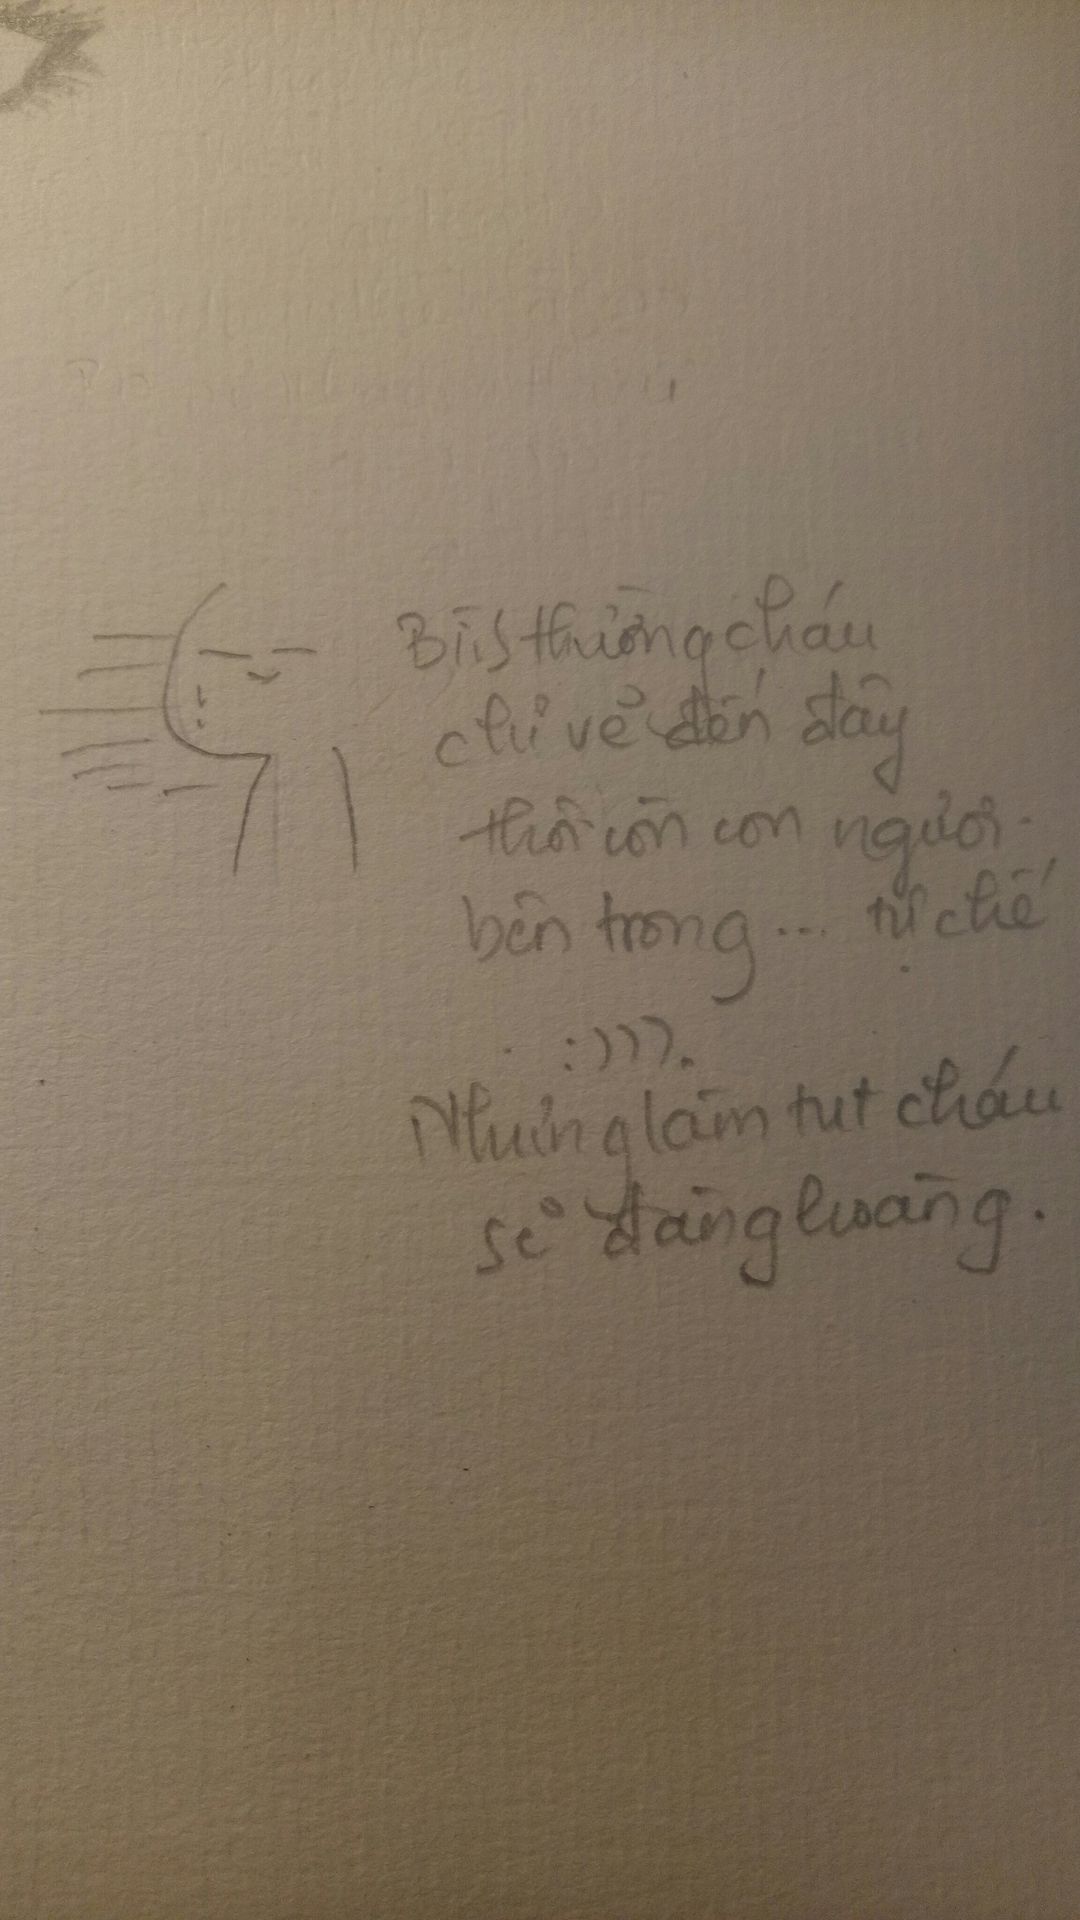 Bìis thường cháu
chỉ vẽ đến đây
thôi còn con người
bên trong... tự chế
:))).
Nhưng làm tut cháu
sẽ đàng hoàng.